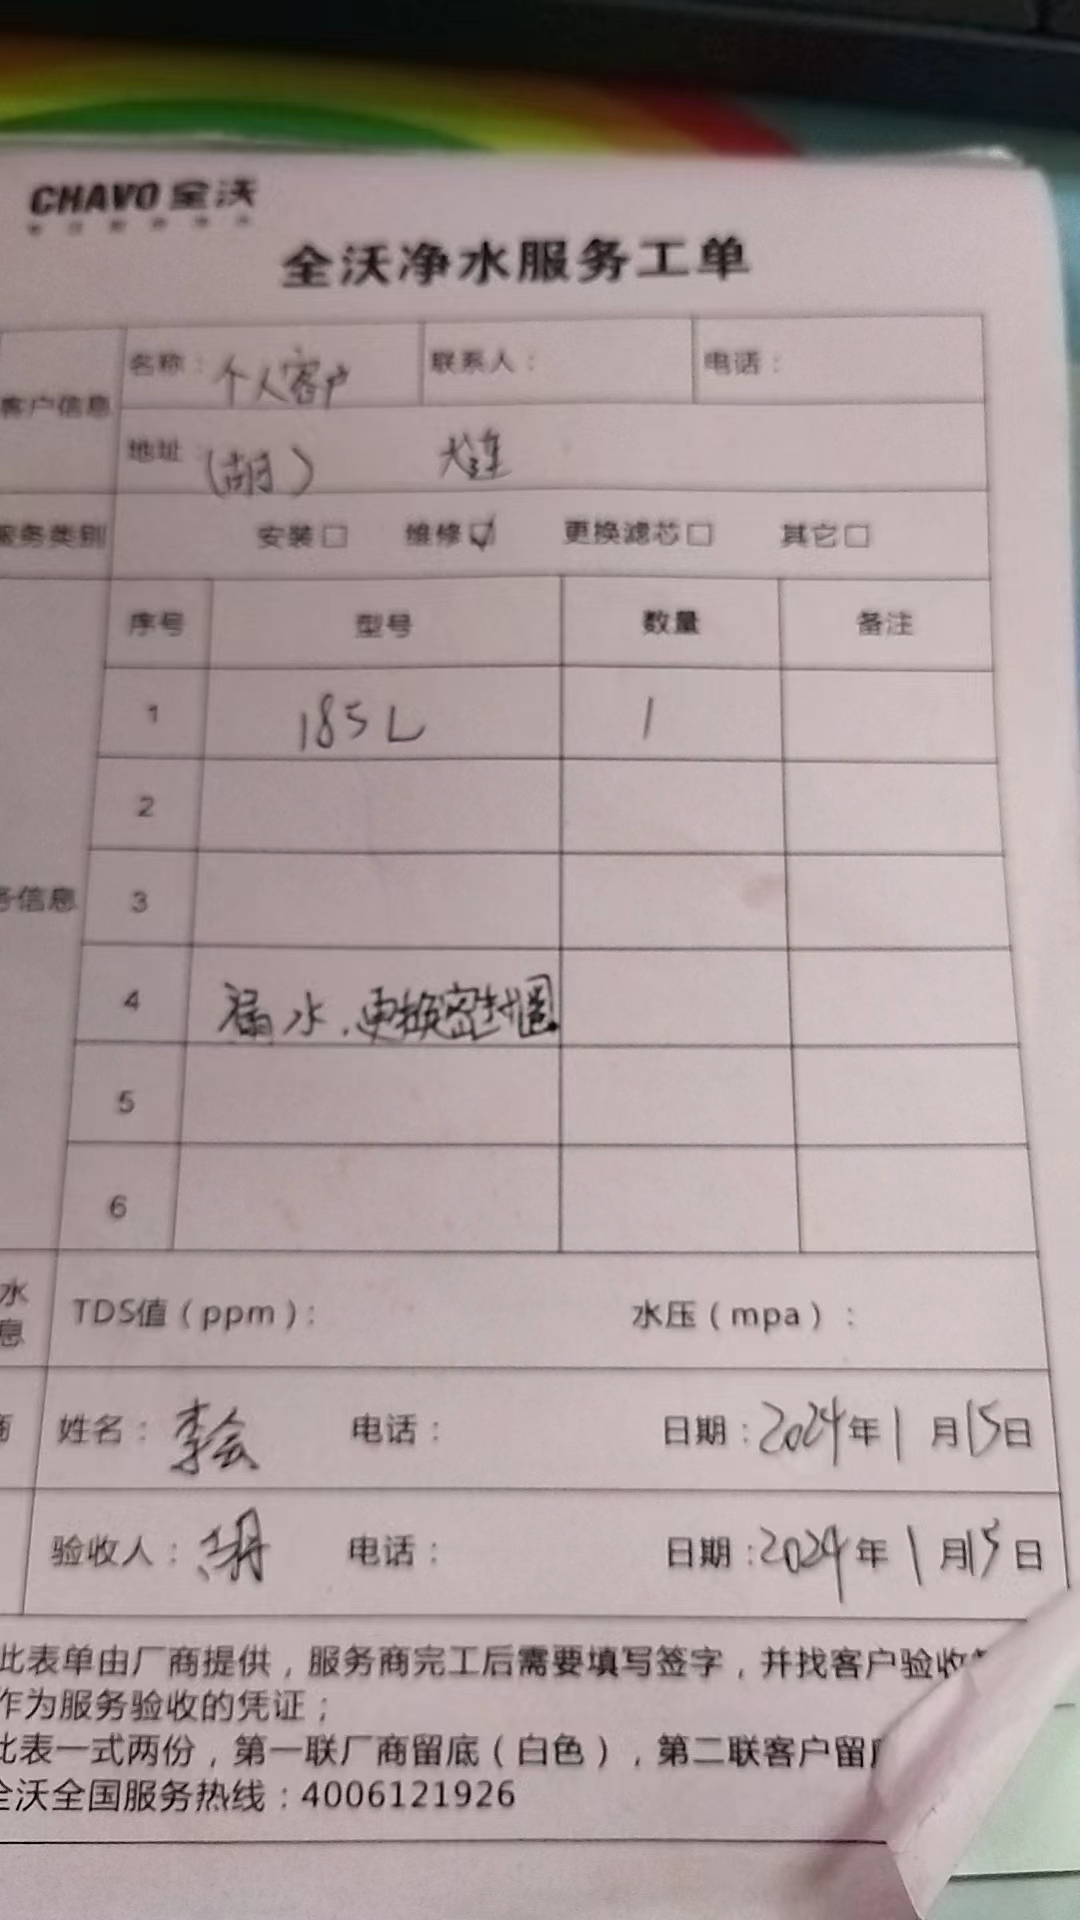 CHAVO 全沃
全沃净水服务工单
名称：个人客户 联系人： 电话：
客户信息
地址：（胡） 大连
服务类别 安装□ 维修☑ 更换滤芯□ 其它□
序号 型号 数量 备注
1 185L 1
2
务信息 3
4 漏水，更换密封圈
5
6
水
息
TDS值（ppm）： 水压（mpa）：
商 姓名：李会 电话： 日期：2024年1月15日
验收人：胡 电话： 日期：2024年1月15日
此表单由厂商提供，服务商完工后需要填写签字，并找客户验收
作为服务验收的凭证；
此表一式两份，第一联厂商留底（白色），第二联客户留
全沃全国服务热线：4006121926